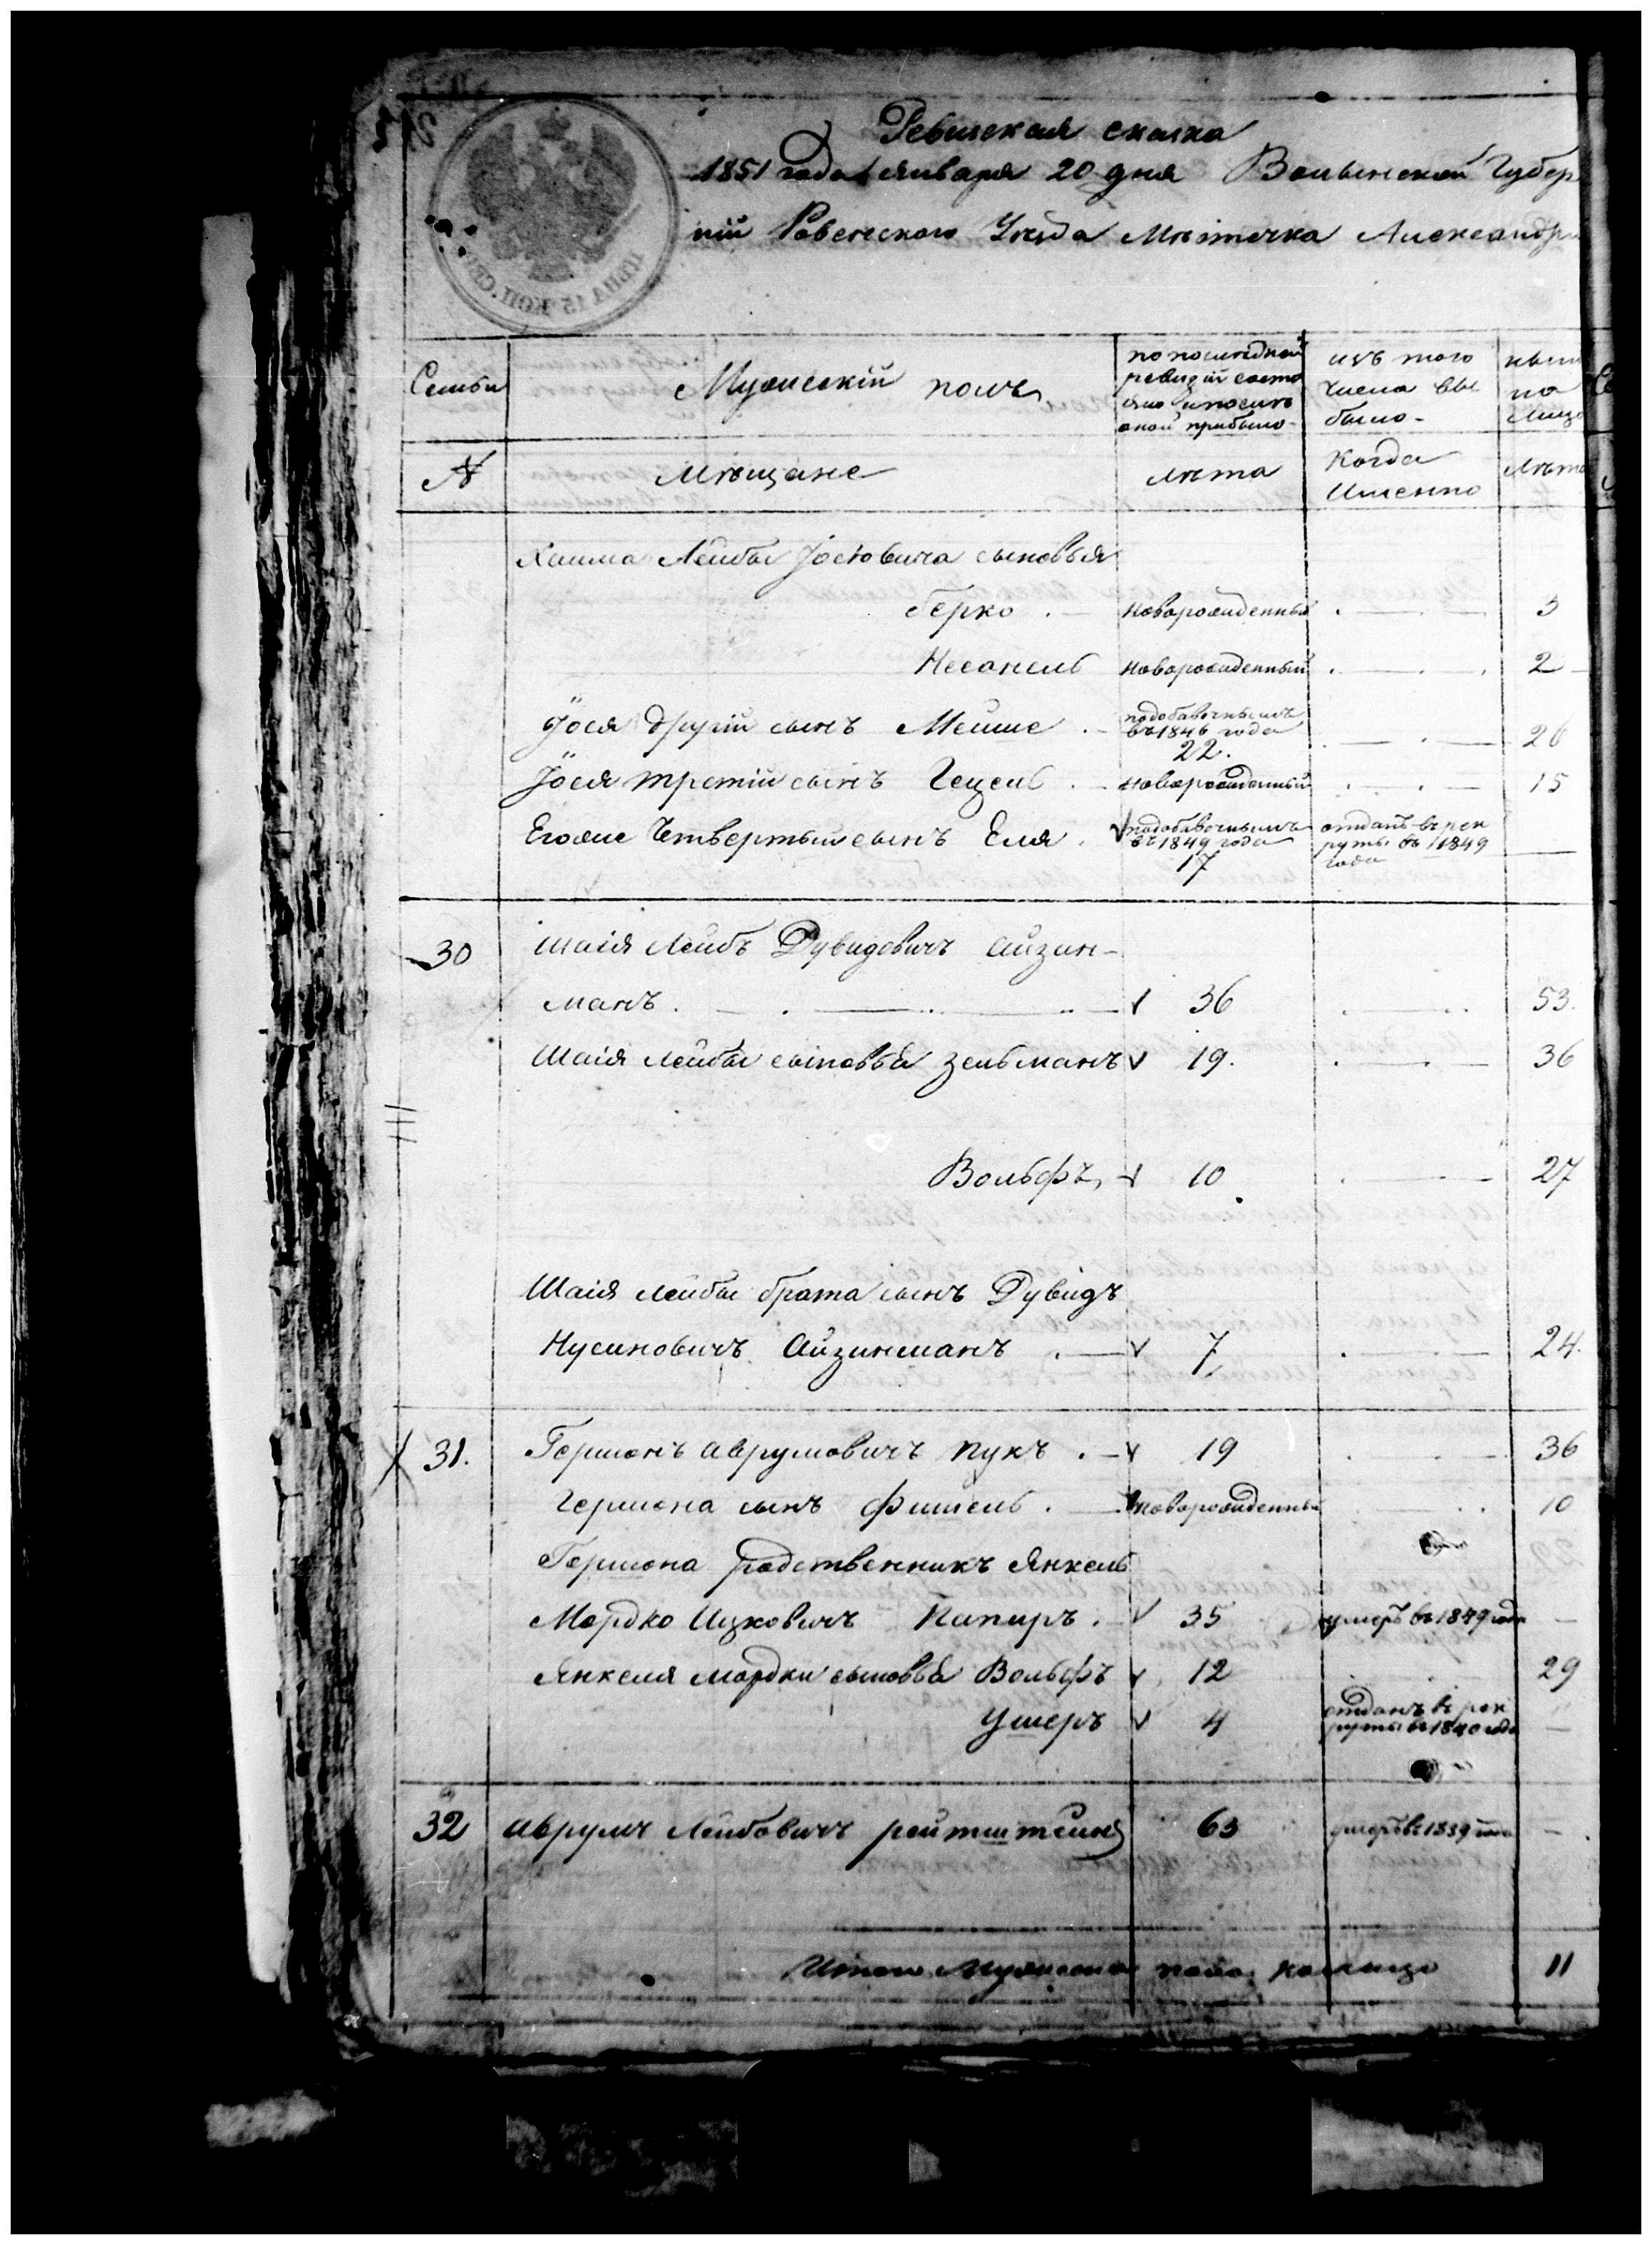 Ревизская сказка
1851 года января 20 дня Волынской Губер
нiй Ровенского Уезда Мѣстечка Александрi
ЦѢНА 15 КОП. СЕР.
Семьи
Мужескiй полъ
по последней
ревизiй состо
яло и после
оной прибыло
изъ того
числа вы
было
ныне
на
лицо
№
Мѣщане
лѣта
Когда
Именно
лѣта
Хаима Лейбы Iосiовича сыновья
Герко новорожденный 3
Несанель новорожденный 2
Iося другiй сынъ Мейше подобавочнымъ
въ 1846 года
22. 26
Iося третiй сынъ Гецель новорожденный 15
Егоже Четвертый сынъ Еля подобавочнымъ
въ 1849 года
17
отданъ въ рек
руты въ 1849
года
30 Шаiя Лейбъ Дувидовичъ Айзин-
манъ 36 53.
Шаiя Лейбы сыновья Зельманъ 19. 36
Вольфъ 10 27
Шаiя Лейбы брата сынъ Дувидъ
Нусиновичъ Айзинманъ 7 24.
31. Гершонъ Аврумовичъ Пукъ 19 36
Гершона сынъ Фишель новорожденный 10
Гершона родственникъ Янкель
Мордко Ицковичъ Папиръ 35 умеръ въ 1849 года
Янкеля Мордки сыновья Вольфъ 12 29
Ушеръ 4 отданъ въ рек
руты въ 1840 года
32 Аврумъ Лейбовичъ Рейтштейнъ 63 умеръ въ 1839 года
Итого Мужеска пола на лицо 11